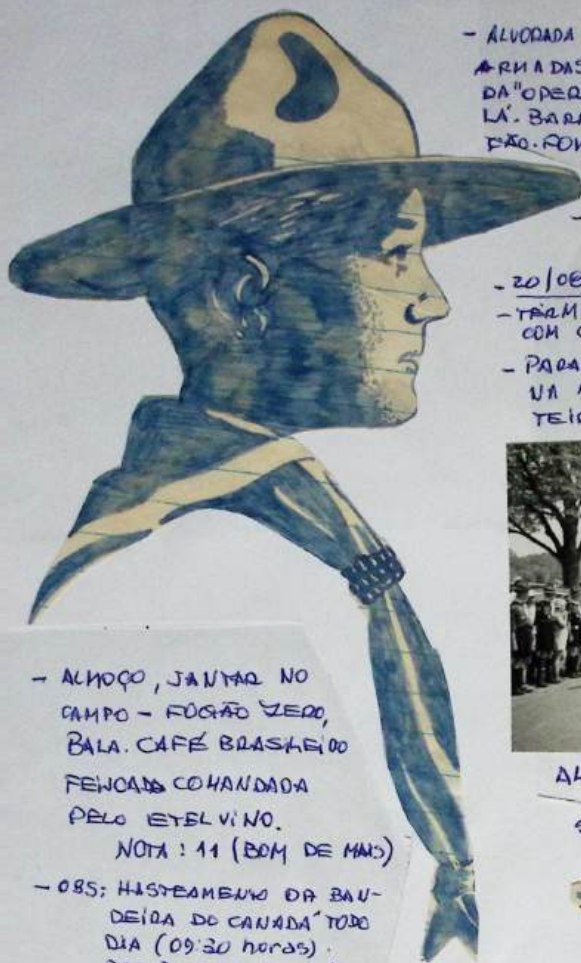 - ALVORADA
ARMADAS
DA "OPER
LÁ. BARA
ÇÃO. FOM
- 20/08
- TÉRM
COM
- PARA
NA
TEIR
- ALMOÇO, JANTAR NO
CAMPO - FOGÃO ZERO,
BALA. CAFÉ BRASILEIRO
FEIJOADA COMANDADA
PELO ETELVINO.
NOTA: 11 (BOM DE MAIS)
- OBS: HASTEAMENTO DA BAN-
DEIRA DO CANADÁ TODO
DIA (09:30 horas).
AL